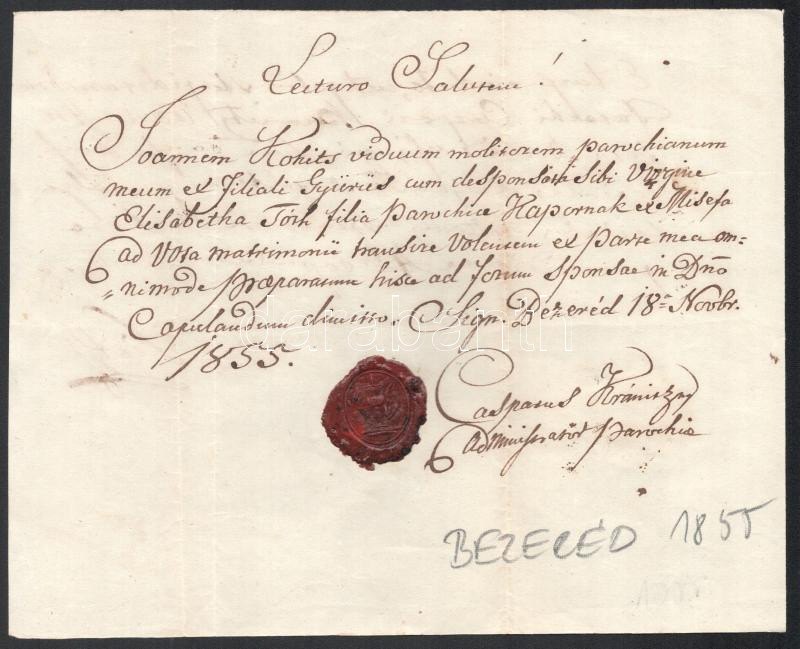 Lecturo Salutem!
Joannem Kohits viduum molitorem parochianum
meum ex filiali Gyürüs cum desponsata sibi Virgine
Elisabetha Tóth filia Parochiae Kapornak ex Misefa
ad vota matrimonii transire volentem ex parte mea om=
nimode praeparatum hisce ad forum sponsae in Dno
Copulandum dimitto. Sign. Bezeréd 18a Novbr.
1855.
Casparus
administrator Parochiae
BEZERÉD 1855
darabanth